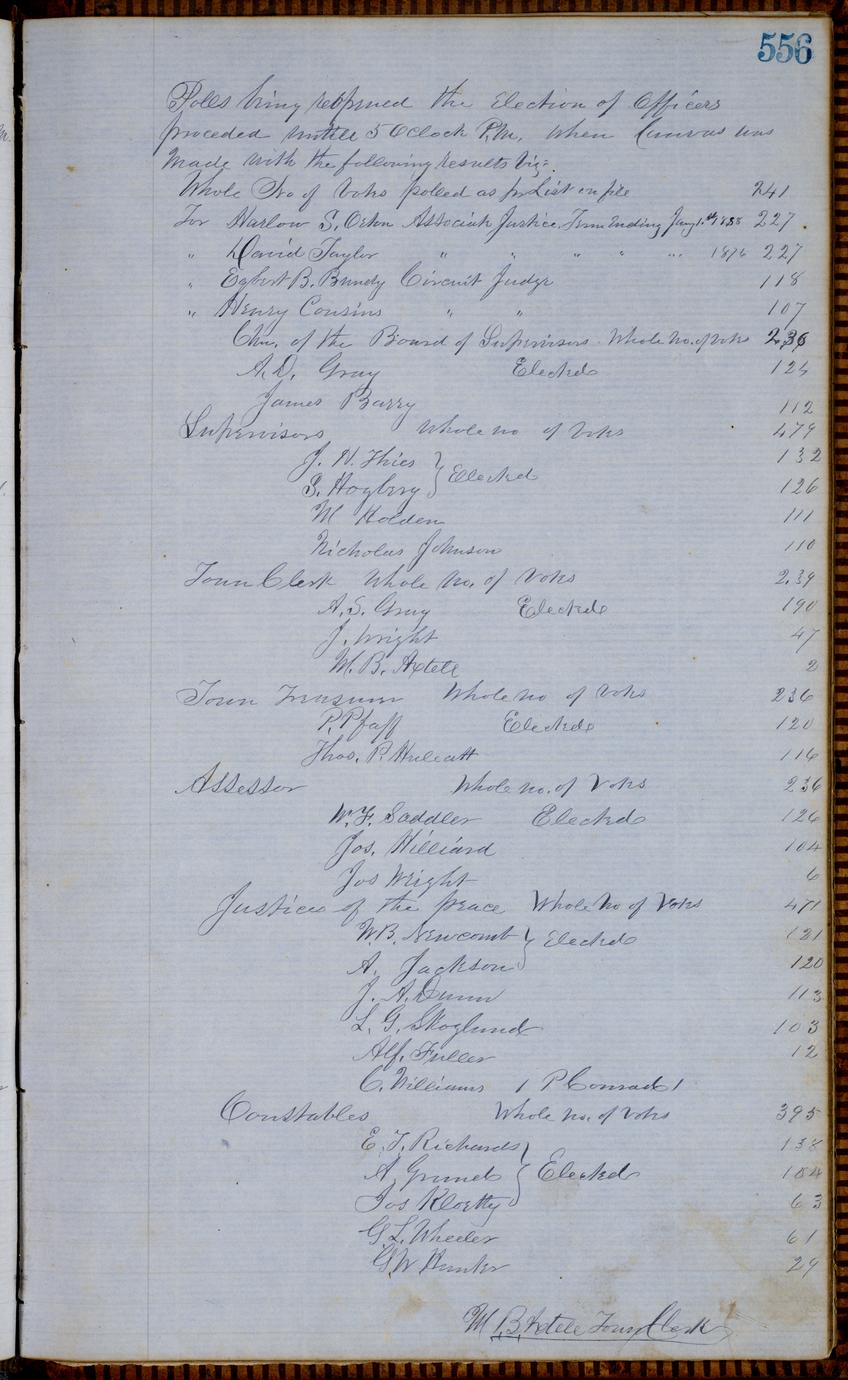 556
Polls being reopened the Election of Officers
proceded untill 5 Oclock P.M. When Canvas was
Made with the following results Viz:
Whole No of Votes polled as pr List on file 241
For Harlow S. Orton Associate Justice Term Ending Jany 1st 1888 227
" David Taylor " " " " " 1876 227
" Egbert B. Bundy Circuit Judge 118
" Henry Cousins " " 107
Chn. of the Board of Supervisors. Whole No. of Votes 236
A.D. Gray Elected 124
James Barry 112
Supervisors Whole no of Votes 479
J. N. Thies } Elected 132
S. Hogberg } 126
M Holden 111
Nicholas Johnson 110
Town Clerk Whole No. of Votes 239
A.S. Gray Elected 190
J. Wright 47
M.B. Axtele 2
Town Treasurer Whole no of Votes 236
P. Pfaff Elected 120
Thos. P. Huleatt 116
Assessor Whole no. of Votes 236
W.F. Saddler Elected 126
Jos. Hilliard 104
Jos Wright 6
Justices of the peace Whole No of Votes 471
W.B. Newcomb } Elected 121
A. Jackson } 120
J. A. Dunn 113
L. G. Skoglund 103
Alf. Fuller 12
C. Williams 1 P Conrad 1
Constables Whole no. of Votes 395
E. T. Richards } 138
A Grund } Elected 104
Jos Kloetty } 63
G L. Wheeler 61
G W Hunter 29
M B. Axtele Town Clerk